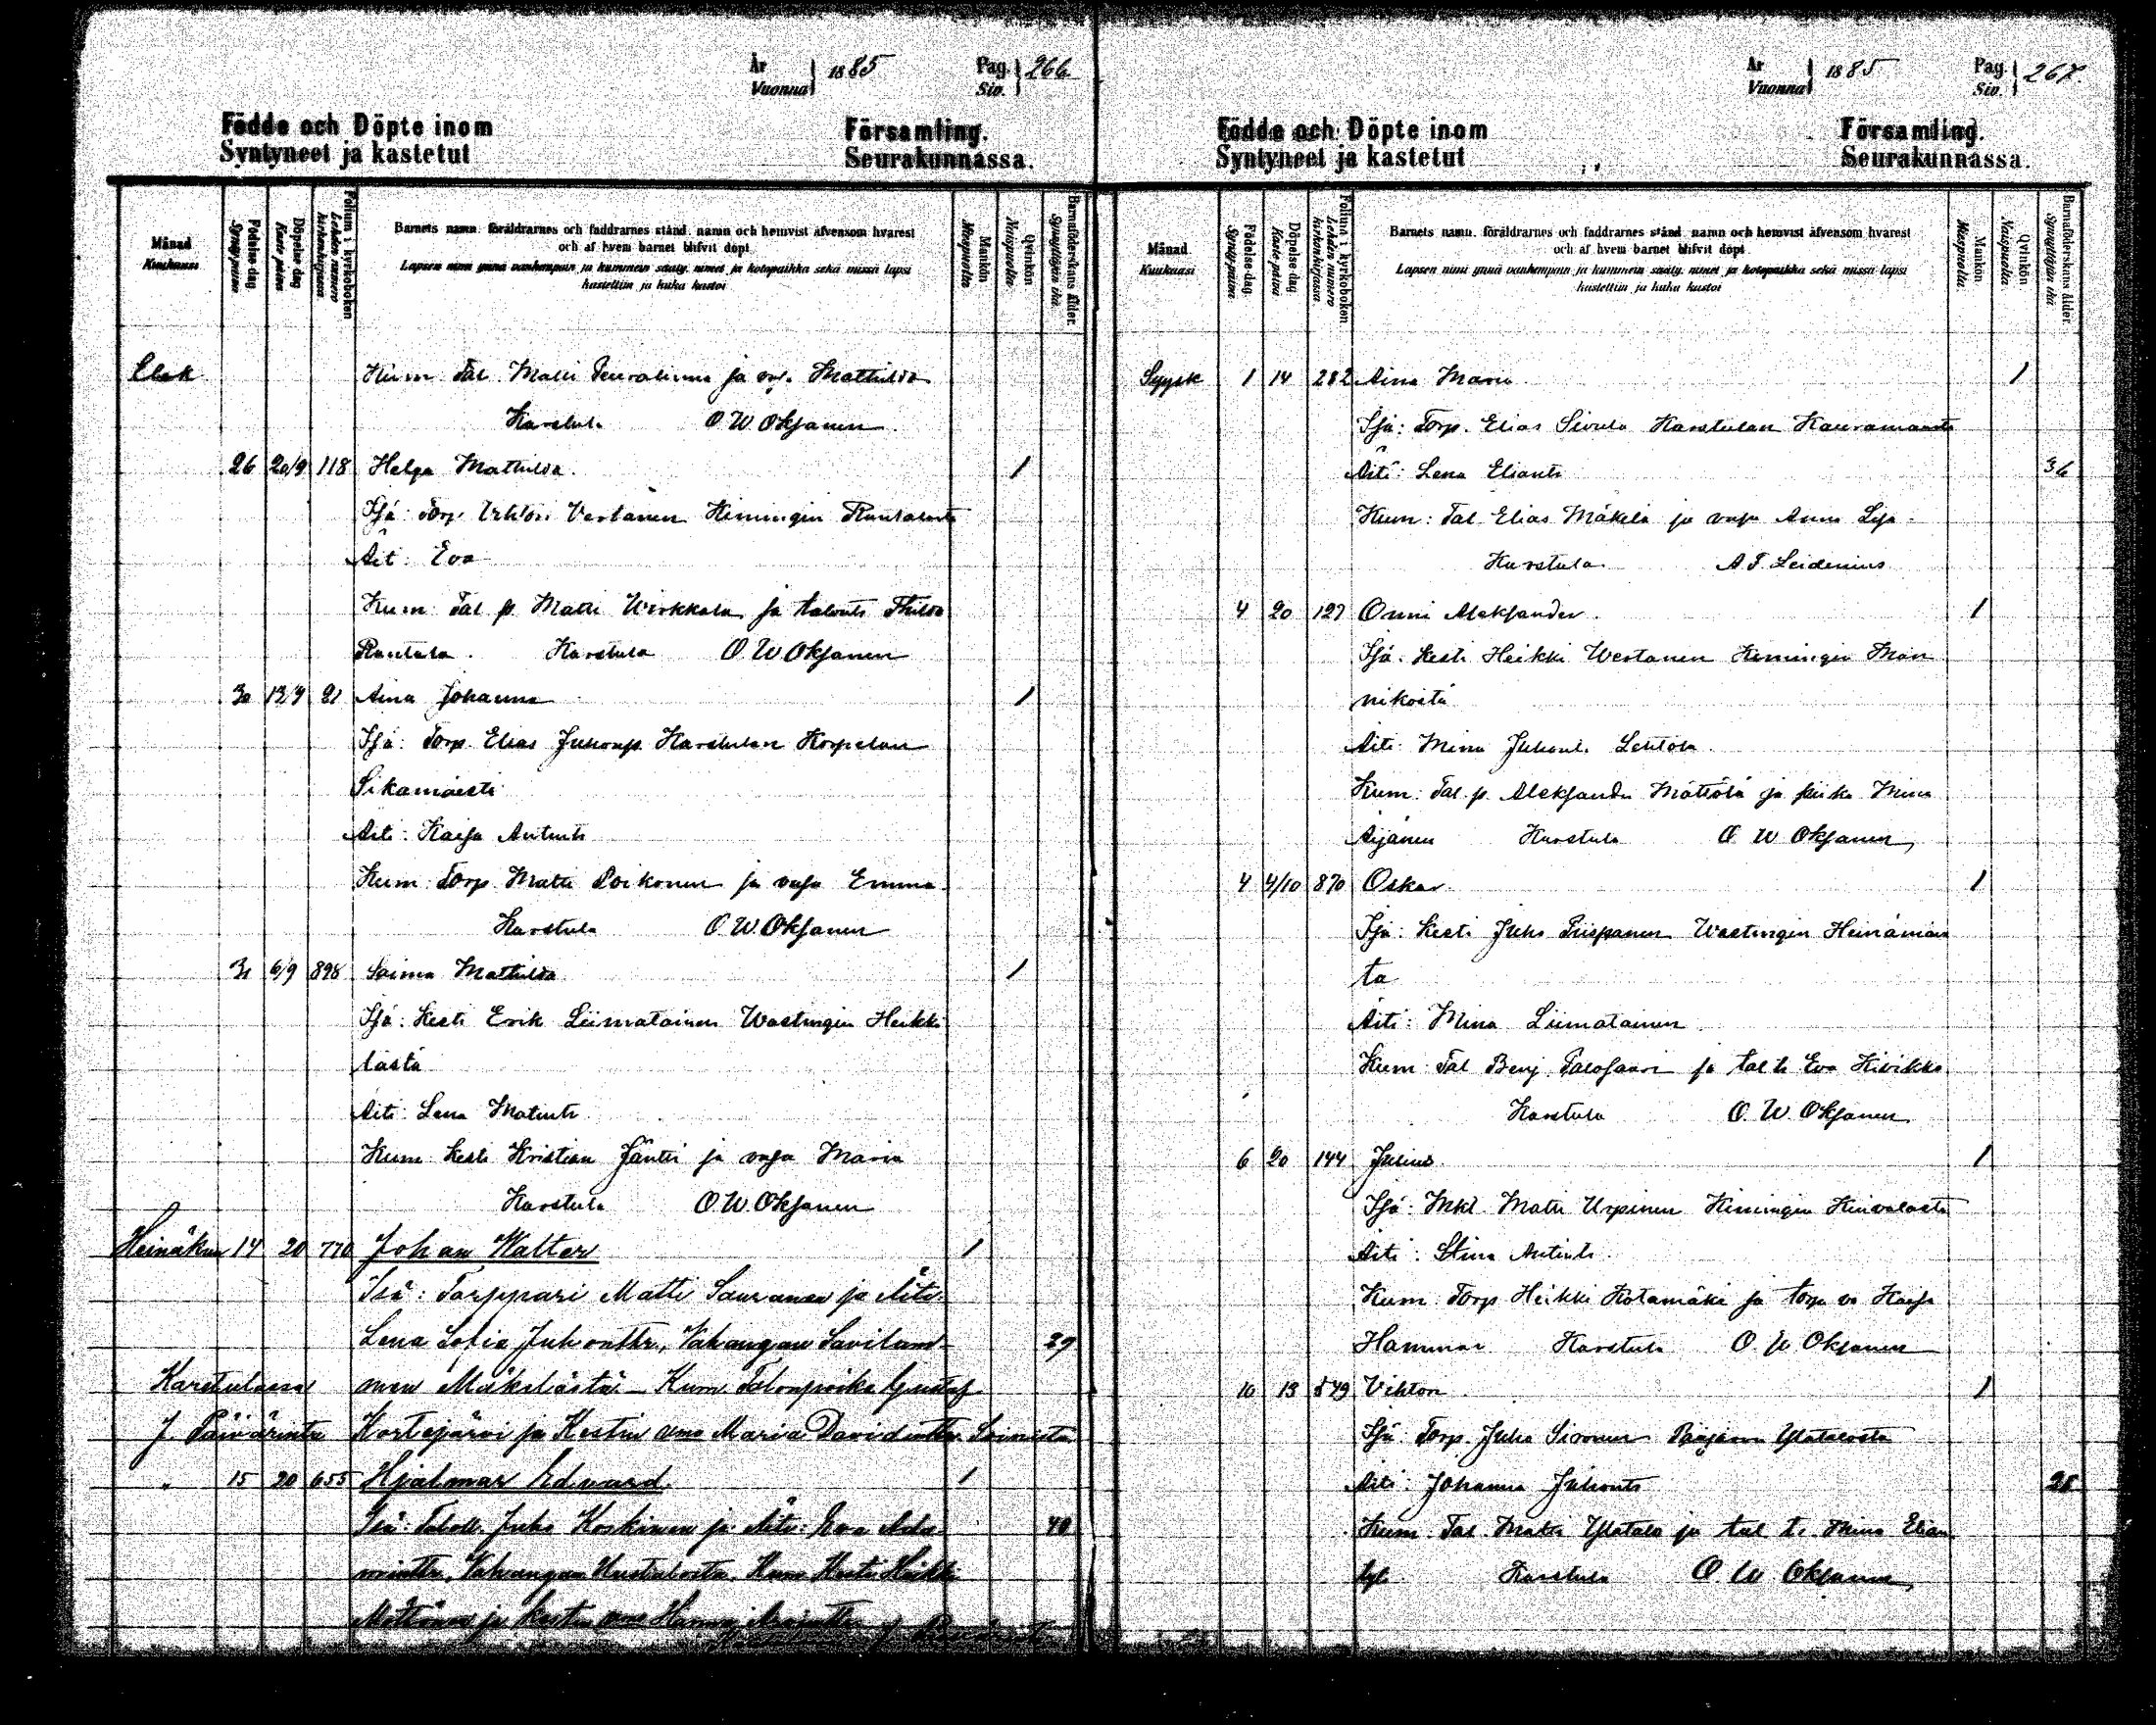 År
Vuonna 1885
Pag.
Siv. 266
Födde och Döpte inom Församling.
Syntyneet ja kastetut Seurakunnassa.
Månad
Kuukausi
Födelse dag
Syntypäivä
Döpelse dag
Kaste päivä
Folium i kyrkoboken
Lehden numero kirkonkirjassa
Barnets namn, föräldrarnes och faddrarnes stånd, namn och hemvist äfvensom hvarest
och af hvem barnet blifvit döpt
Lapsen nimi ynnä vanhempain ja kummein sääty, nimet ja kotopaikka sekä missä lapsi
kastettiin ja kuka kastoi
Mankön
Miespuolia
Qvinkön
Naispuolia
Barnaföderskans ålder.
Synnyttäjän ikä
Elok Kum Tal. Matti ja vaj. Mathilda
Karstula O W Oksanen
26 20/9 118 Helga Mathilda 1
Isä: Torp. Vihtori Vertanen Kimingin Rantalasta
Äit: Eva
Kum: Tal p. Matti Wirkkala ja talonts Thilda
Rantala. Karstula O. W Oksanen
30 13/9 21 Aina Johanna 1
Isä: Torp. Elias Juhonp. Karstulan Korpelan
Sikamäesti
Äiti: Kaisa Antints
Kum: Torp. Matti Poikonen ja vaja Emma
Karstula O W Oksanen
31 6/9 898 Saima Mathilda 1
Isä: Kesti Erik Liimatainen Wastingin Heikki
lästä
Äiti: Lena Matints
Kum: Kesti Kristian Jäntti ja vaja Maria
Karstula O W Oksanen
Heinäkuu 14 20 770 Johan Walter 1
Isä: Torppari Matti Sauranen ja Äiti:
Lena Sofia Juhonttr., Vahangan Savilam- 29
Karstulassa men Mäkelästä – Kum Talonpoika Gustaf
J. Päivärinta Kortejärvi ja Kestin vmo Maria Davidinttr. Soinista
" 15 20 655 Hjalmar Edward. 1
Isä: Taloll. Juho Koskinen ja Äiti: Eva Ada- 40
mintr. Vahangan Uustalosta. Kum Kesti Heikki
Möttönen ja Kestin vmo Hanna
År
Vuonna 1885
Pag.
Siv. 267.
Födde och Döpte inom Församling.
Syntyneet ja kastetut Seurakunnassa.
Månad
Kuukausi
Födelse dag.
Syntypäivä
Döpelse dag
Kaste päivä
Folium i kyrkoboken.
Lehden numero kirkonkirjassa
Barnets namn, föräldrarnes och faddrarnes stånd, namn och hemvist äfvensom hvarest
och af hvem barnet blifvit döpt
Lapsen nimi ynnä vanhempain ja kummein sääty, nimet ja kotopaikka sekä missä lapsi
kastettiin ja kuka kastoi
Mankön
Miespuolia
Qvinkön
Naispuolia
Barnaföderskans ålder.
Synnyttäjän ikä
Syysk 1 14 282 Aina Maria 1
Isä: Torp. Elias Sivula Karstulan Kauramaasta
Äiti: Lena Eliants 36
Kum: Tal Elias Mäkelä ja vaja Anna Lisa
Karstula. A. F. Leidenius
4 20 127 Onni Aleksander 1
Isä. Kesti Heikki Wertanen Kimingin Män
nikostä
Äiti: Mina Juhonts. Lehtola
Kum: Tal. p. Aleksander Mättölä ja piika Mina
Äijänen Karstula O W Oksanen
4 4/10 870 Oskar 1
Isä: Kesti Juho Piispanen Wastingin Heinämäes
tä
Äiti: Mina Liimatainen
Kum: Tal Benj. Talosaari ja tal ts Eva Kivikko
Karstula O. W Oksanen
6 20 144 Julius 1
Isä: Mkl Matti Urpinen Kimingin Hinvalasta
Äiti: Stina Antints.
Kum: Torp Heikki Kotamäki ja torp vo Kaisa
Hammar Karstula O. W Oksanen
10 13 549 Vihtori 1
Isä: Torp. Juho Sironen Pääjärven Ylätalosta
Äiti: Johanna Juhonts 28
Kum. Tal. Matti Ylätalo ja tal ts Mina Elian
Karstula O W Oksanen